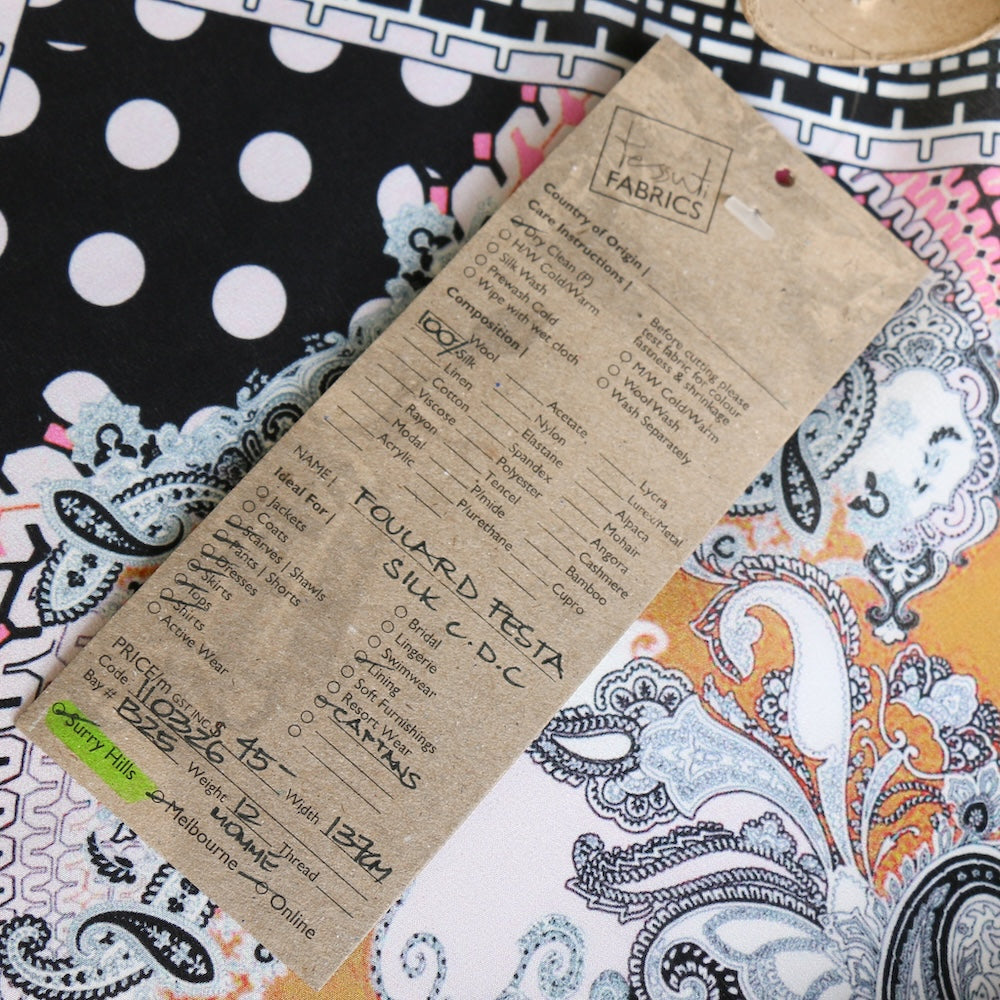 tessuti
FABRICS
Country of Origin |
Care Instructions |
Dry Clean (P)
H/W Cold/Warm
Silk Wash
Prewash Cold
Wipe with wet cloth
Before cutting please
test fabric for colour
fastness & shrinkage
M/W Cold/Warm
Wool Wash
Wash Separately
Composition |
Wool
100% Silk
Linen
Cotton
Viscose
Rayon
Modal
Acrylic
Acetate
Nylon
Elastane
Spandex
Polyester
Tencel
P/mide
P/urethane
Lycra
Lurex/Metal
Alpaca
Mohair
Angora
Cashmere
Bamboo
Cupro
NAME | FOULARD FESTA
SILK C.D.C
Ideal For |
Jackets
Coats
Scarves | Shawls
Pants | Shorts
Dresses
Skirts
Tops
Shirts
Active Wear
Bridal
Lingerie
Swimwear
Lining
Soft Furnishings
Resort Wear
CAFTANS
PRICE/m GST INC $ 45-
Code 1110326 Width 137CM
Bay # B25 Weight 12 MOMME Thread
Surry Hills Melbourne Online